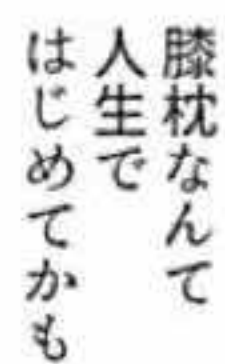 膝枕なんて
人生で
はじめてかも